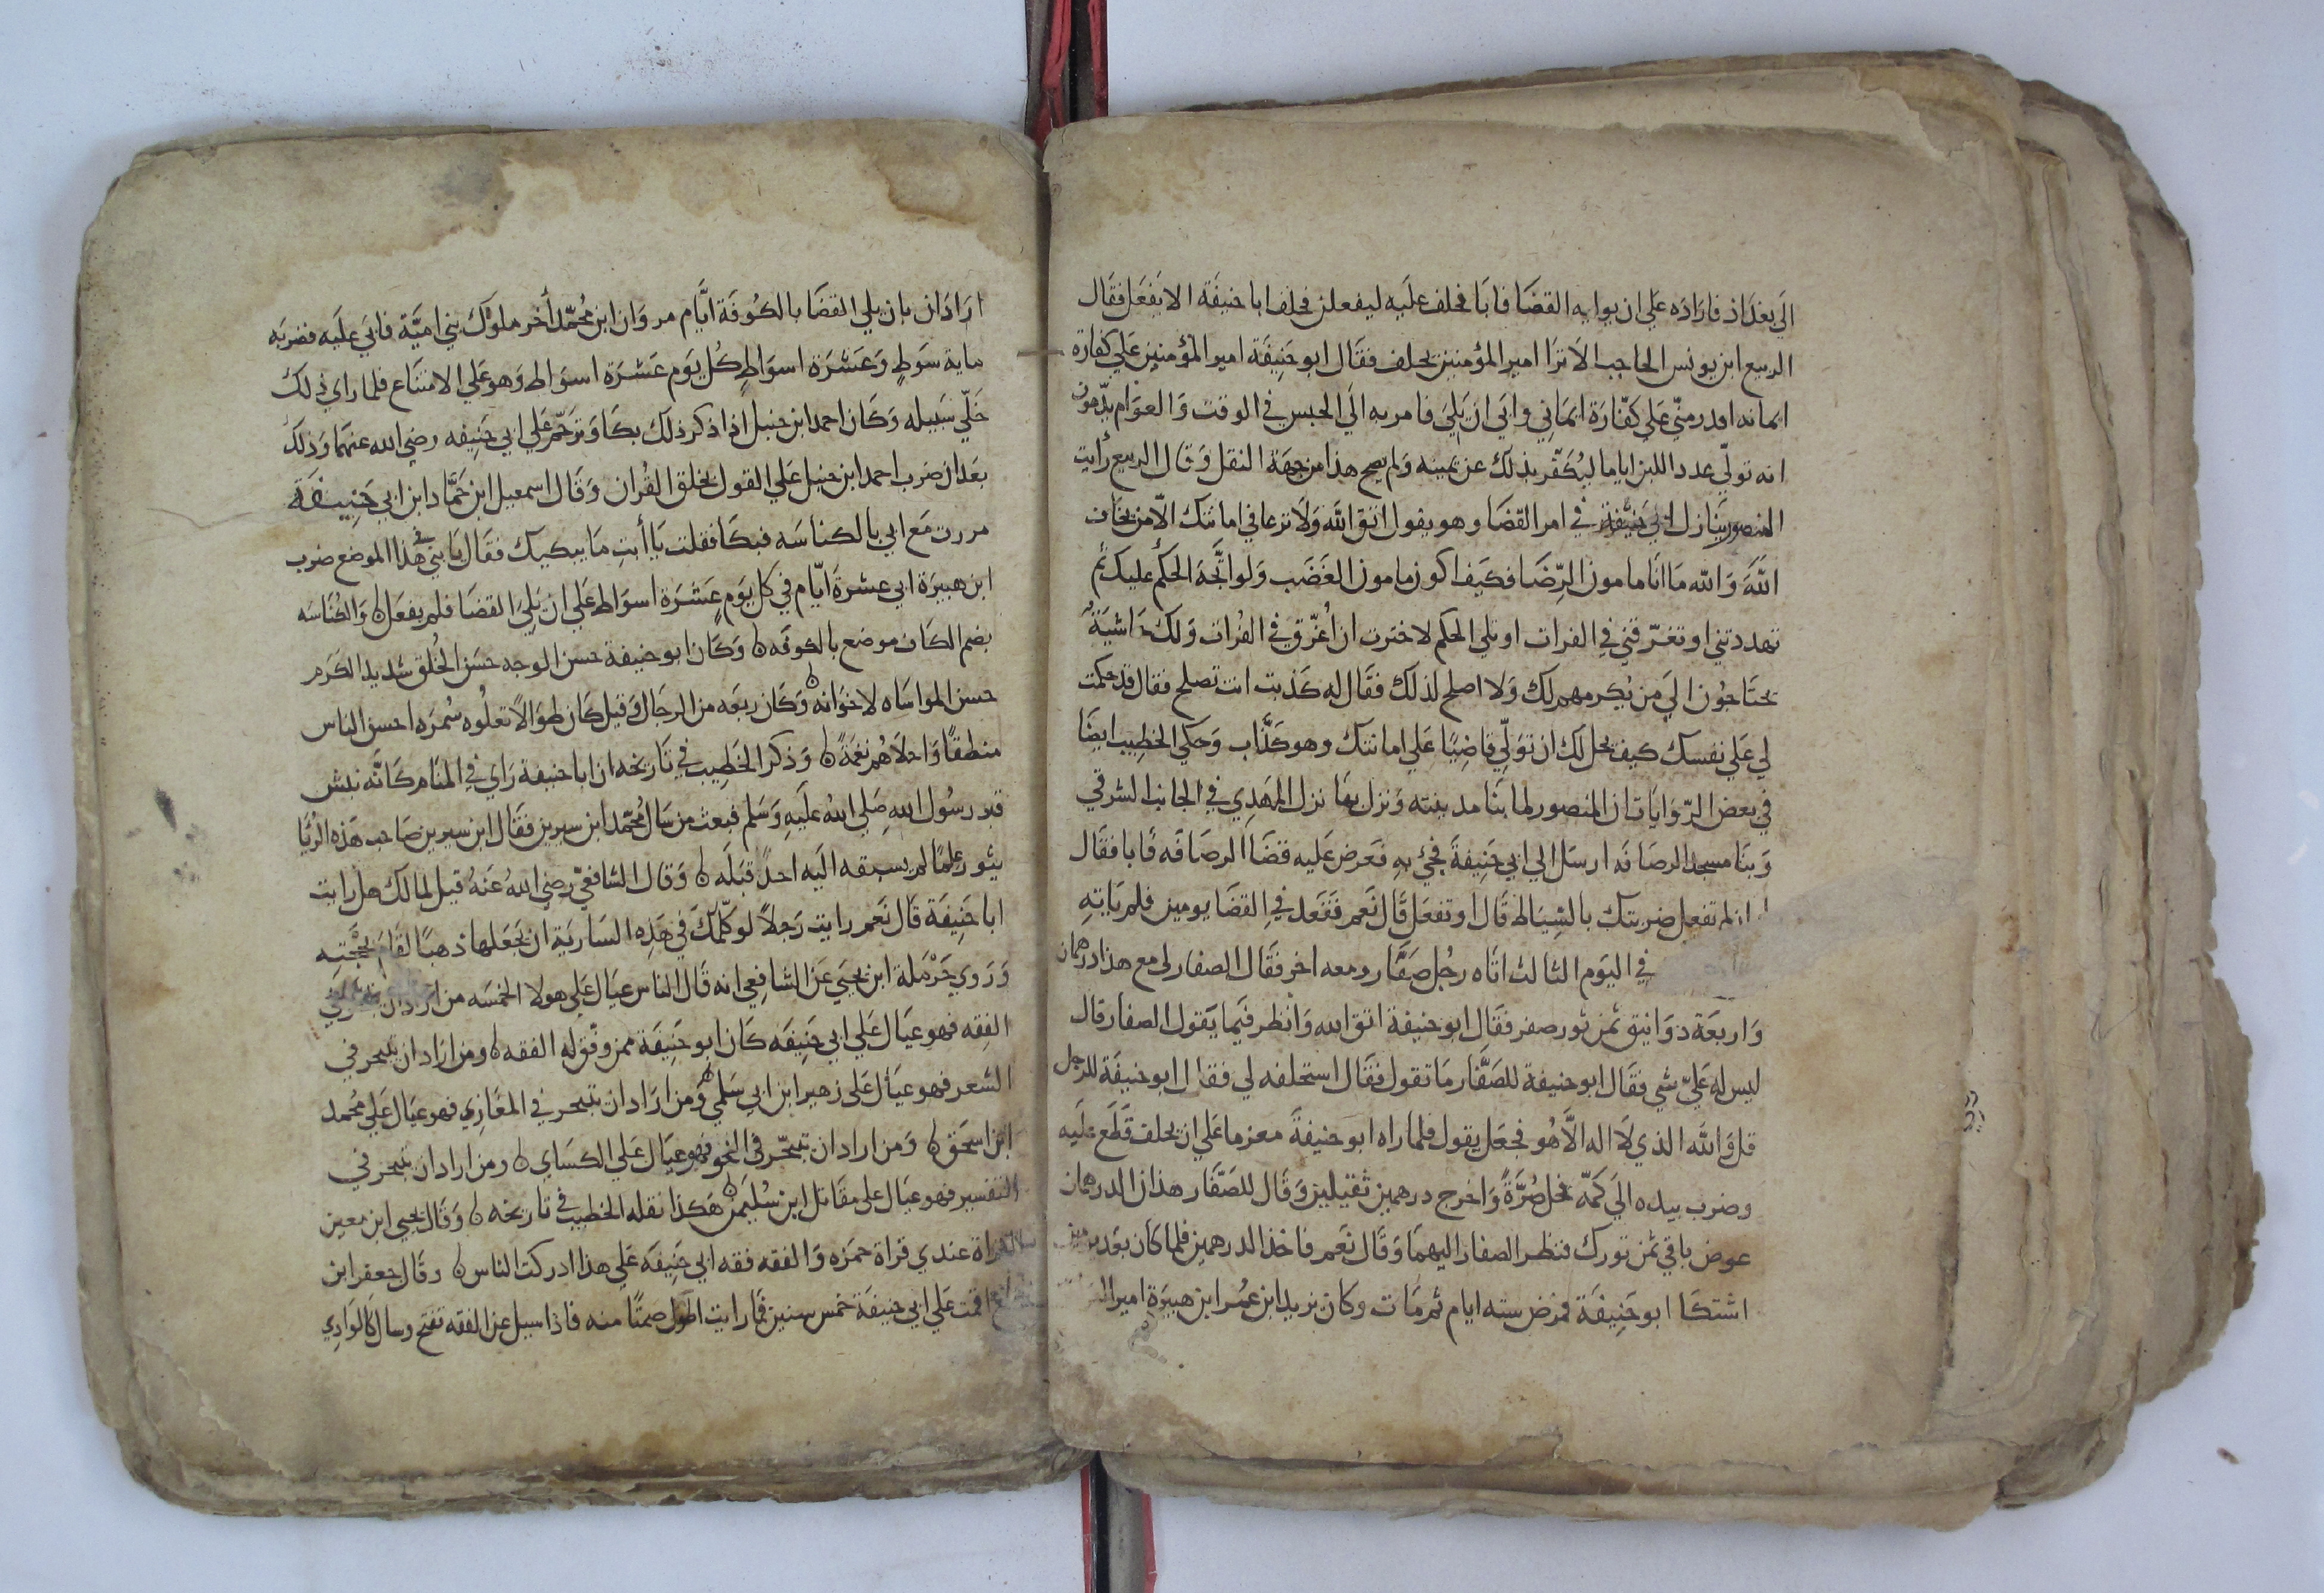 الي بغداذ فاراده علي ان يوليه القضا فابا فحلف عليه ليفعلن فحلف ابا حنيفة الا يفعل فقال
الربيع ابن يونس الحاجب الا ترا امير المؤمنين يحلف فقال ابو حنيفة امير المؤمنين علي كفارة
ايمانه اقدر منّي علي كفّارة ايماني وابي ان يلي فامر به الي الحبس في الوقت والعوام يدّعون
انه تولّي عدد اللبن اياما ليكفّر بذلك عن يمينه ولم يصح هذا من جهة النقل وقال الربيع رأيت
المنصور ينازل ابي حنيفة في امر القضا وهو يقول اتق الله ولا ترعا في امانتك الّا من يخاف
الله والله ما انا مامون الرّضا فكيف اكون مامون الغضب ولو اتّجه الحكم عليك ثم
تهددتني او تغرّقني في الفرات او تلي الحكم لاخترت ان اُغرّق في الفرات ولك حاشيةٌ
يحتاجون الي من يكرمهم لك ولا اصلح لذلك فقال له كذبت انت تصلح فقال قد حكمت
لي علي نفسك كيف يحل لك ان تولّي قاضيًا علي امانتك وهو كذّاب وحكي الخطيب ايضًا
في بعض الرّوايات ان المنصور لما بنا مدينته ونزل بها نزل المهدي في الجانب الشرقي
وبنا مسجد الرصافه ارسل الي ابي حنيفة فجئ به فعرض عليه قضا الرصافه فابا فقال
ان لم تفعل ضربتك بالسياط قال او تفعل قال نعم فقعد في القضا يومين فلم ياتهِ
في اليوم الثالث اتاه رجل صفّار ومعه اخر فقال الصفار لي مع هذا درهمان
واربعة دوانيق ثمن تور صفر فقال ابو حنيفة اتق الله وانظر فيما يقول الصفار قال
ليس له عليّ شي فقال ابو حنيفة للصفّار ما تقول فقال استحلفه لي فقال ابو حنيفة للرجل
قل والله الذي لا اله الّا هو فجعل يقول فلما راه ابو حنيفة معزما علي ان يحلف قطع عليه
وضرب بيده الي كمّه فحل صُرّةً واخرج درهمين ثقيلين وقال للصفّار هذان الدرهمان
عوض باقي ثمن تورك فنظر الصفار اليهما وقال نعم فاخذ الدرهمين فلما كان بعد يومين
اشتكا ابو حنيفة فمرض سته ايام ثم مات وكان يزيد ابن عمر ابن هبيرة امير
اراد ان بان يلي القضا بالكوفة ايّام مروان ابن محمّد أخر ملوك بني اميّة فابي عليه فضربه
ماية سوطٍ وعشرة اسواطٍ كل يوم عشرة اسواط وهو علي الامتناع فلما راي ذلك
خلّي سبيله وكان احمد ابن حنبل اذا ذكر ذلك بكا وترحّم علي ابي حنيفه رضي الله عنهما وذلك
بعد ان ضرب احمد ابن حنبل علي القول بخلق القران وقال اسمعيل ابن حمّاد ابن ابي حنيفة
مررت مع ابي بالكناسه فبكا فقلت يا أبت ما يبكيك فقال يا بني في هذا الموضع ضرب
ابن هبيرة ابي عشرة ايّام في كل يوم عشرة اسواط علي ان يلي القضا فلم يفعل ن والكناسه
بضم الكاف موضع بالكوفه ن وكان ابو حنيفة حسن الوجه حسن الخلق شديد الكرم
حسن المواساه لاخوانه ن وكان ربعه من الرجال وقيل كان طوالا تعلوه سُمره احسن الناس
منطقًا واحلاهم نغمةً ن وذكر الخطيب في تاريخه ان ابا حنيفة راي في المنام كانّه نبش
قبر رسول الله صلي الله عليه وسلم فبعث من سال محمّد ابن سيرين فقال ابن سيرين صاحب هذه الرُيا
يثور علمًا لم يسبقه اليه احدٌ قبله ن وقال الشافعيّ رضي الله عنه قيل لمالك هل رايت
ابا حنيفة قال نعم رايت رجلًا لو كلّمك في هذه السارية ان يجعلها ذهبًا لقام بحجّته
وروي حرملة ابن يحيي عن الشافعي انه قال الناس عيال علي هولا الخمسه من اراد ان يتبحر في
الفقه فهو عيال علي ابي حنيفه كان ابو حنيفة ممن وفّق له الفقه ن ومن اراد ان يتبحر في
الشعر فهو عيال علي زهير ابن ابي سلمي ن ومن اراد ان يتبحر في المغازي فهو عيال علي محمد
ابن اسحق ن ومن اراد ان يتبحّر في النحو فهو عيال علي الكساي ن ومن اراد ان يتبحر في
التفسير فهو عيال علي مقاتل ابن سُليمن ن هكذا نقله الخطيب في تاريخه ن وقال يحيي ابن معين
القراة عندي قراة حمزه والفقه فقه ابي حنيفه علي هذا ادركت الناس ن وقال جعفر ابن
اقمت علي ابي حنيفة خمس سنين فما رايت اطول صمتًا منه فاذا سيل عن الفقه تفتح وسال كالوادي